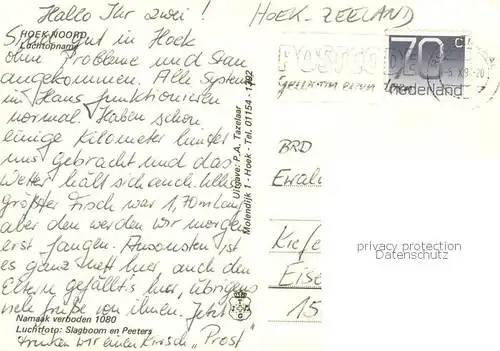 Hallo Ihr zwei !
HOEK-ZEELAND
HOEK-NOORD
Luchtopname
Sind gut in Hoek
ohne Probleme und Stau
angekommen. Alle Systeme
im Haus funktionieren
normal. Haben schon
einige Kilometer hinter
uns gebracht und das
Wetter hält sich auch. Unser
größter Fisch war 1,70m lang
aber den werden wir morgen
erst fangen. Ansonsten ist
es ganz nett hier, auch den
Eltern gefällt's hier, übrigens
viele Grüße von ihnen. Jetzt
Namaak verboden 1080
Luchtfoto: Slagboom en Peeters
trinken wir einen Kirsch „Prost"
Uitgave: P.A. Tazelaar
Molendijk 1 - Hoek - Tel. 01154 - 1392
POSTCODE
70 c
nederland
BRD
Ewald
Kiefe
Eise
15
privacy protection
Datenschutz